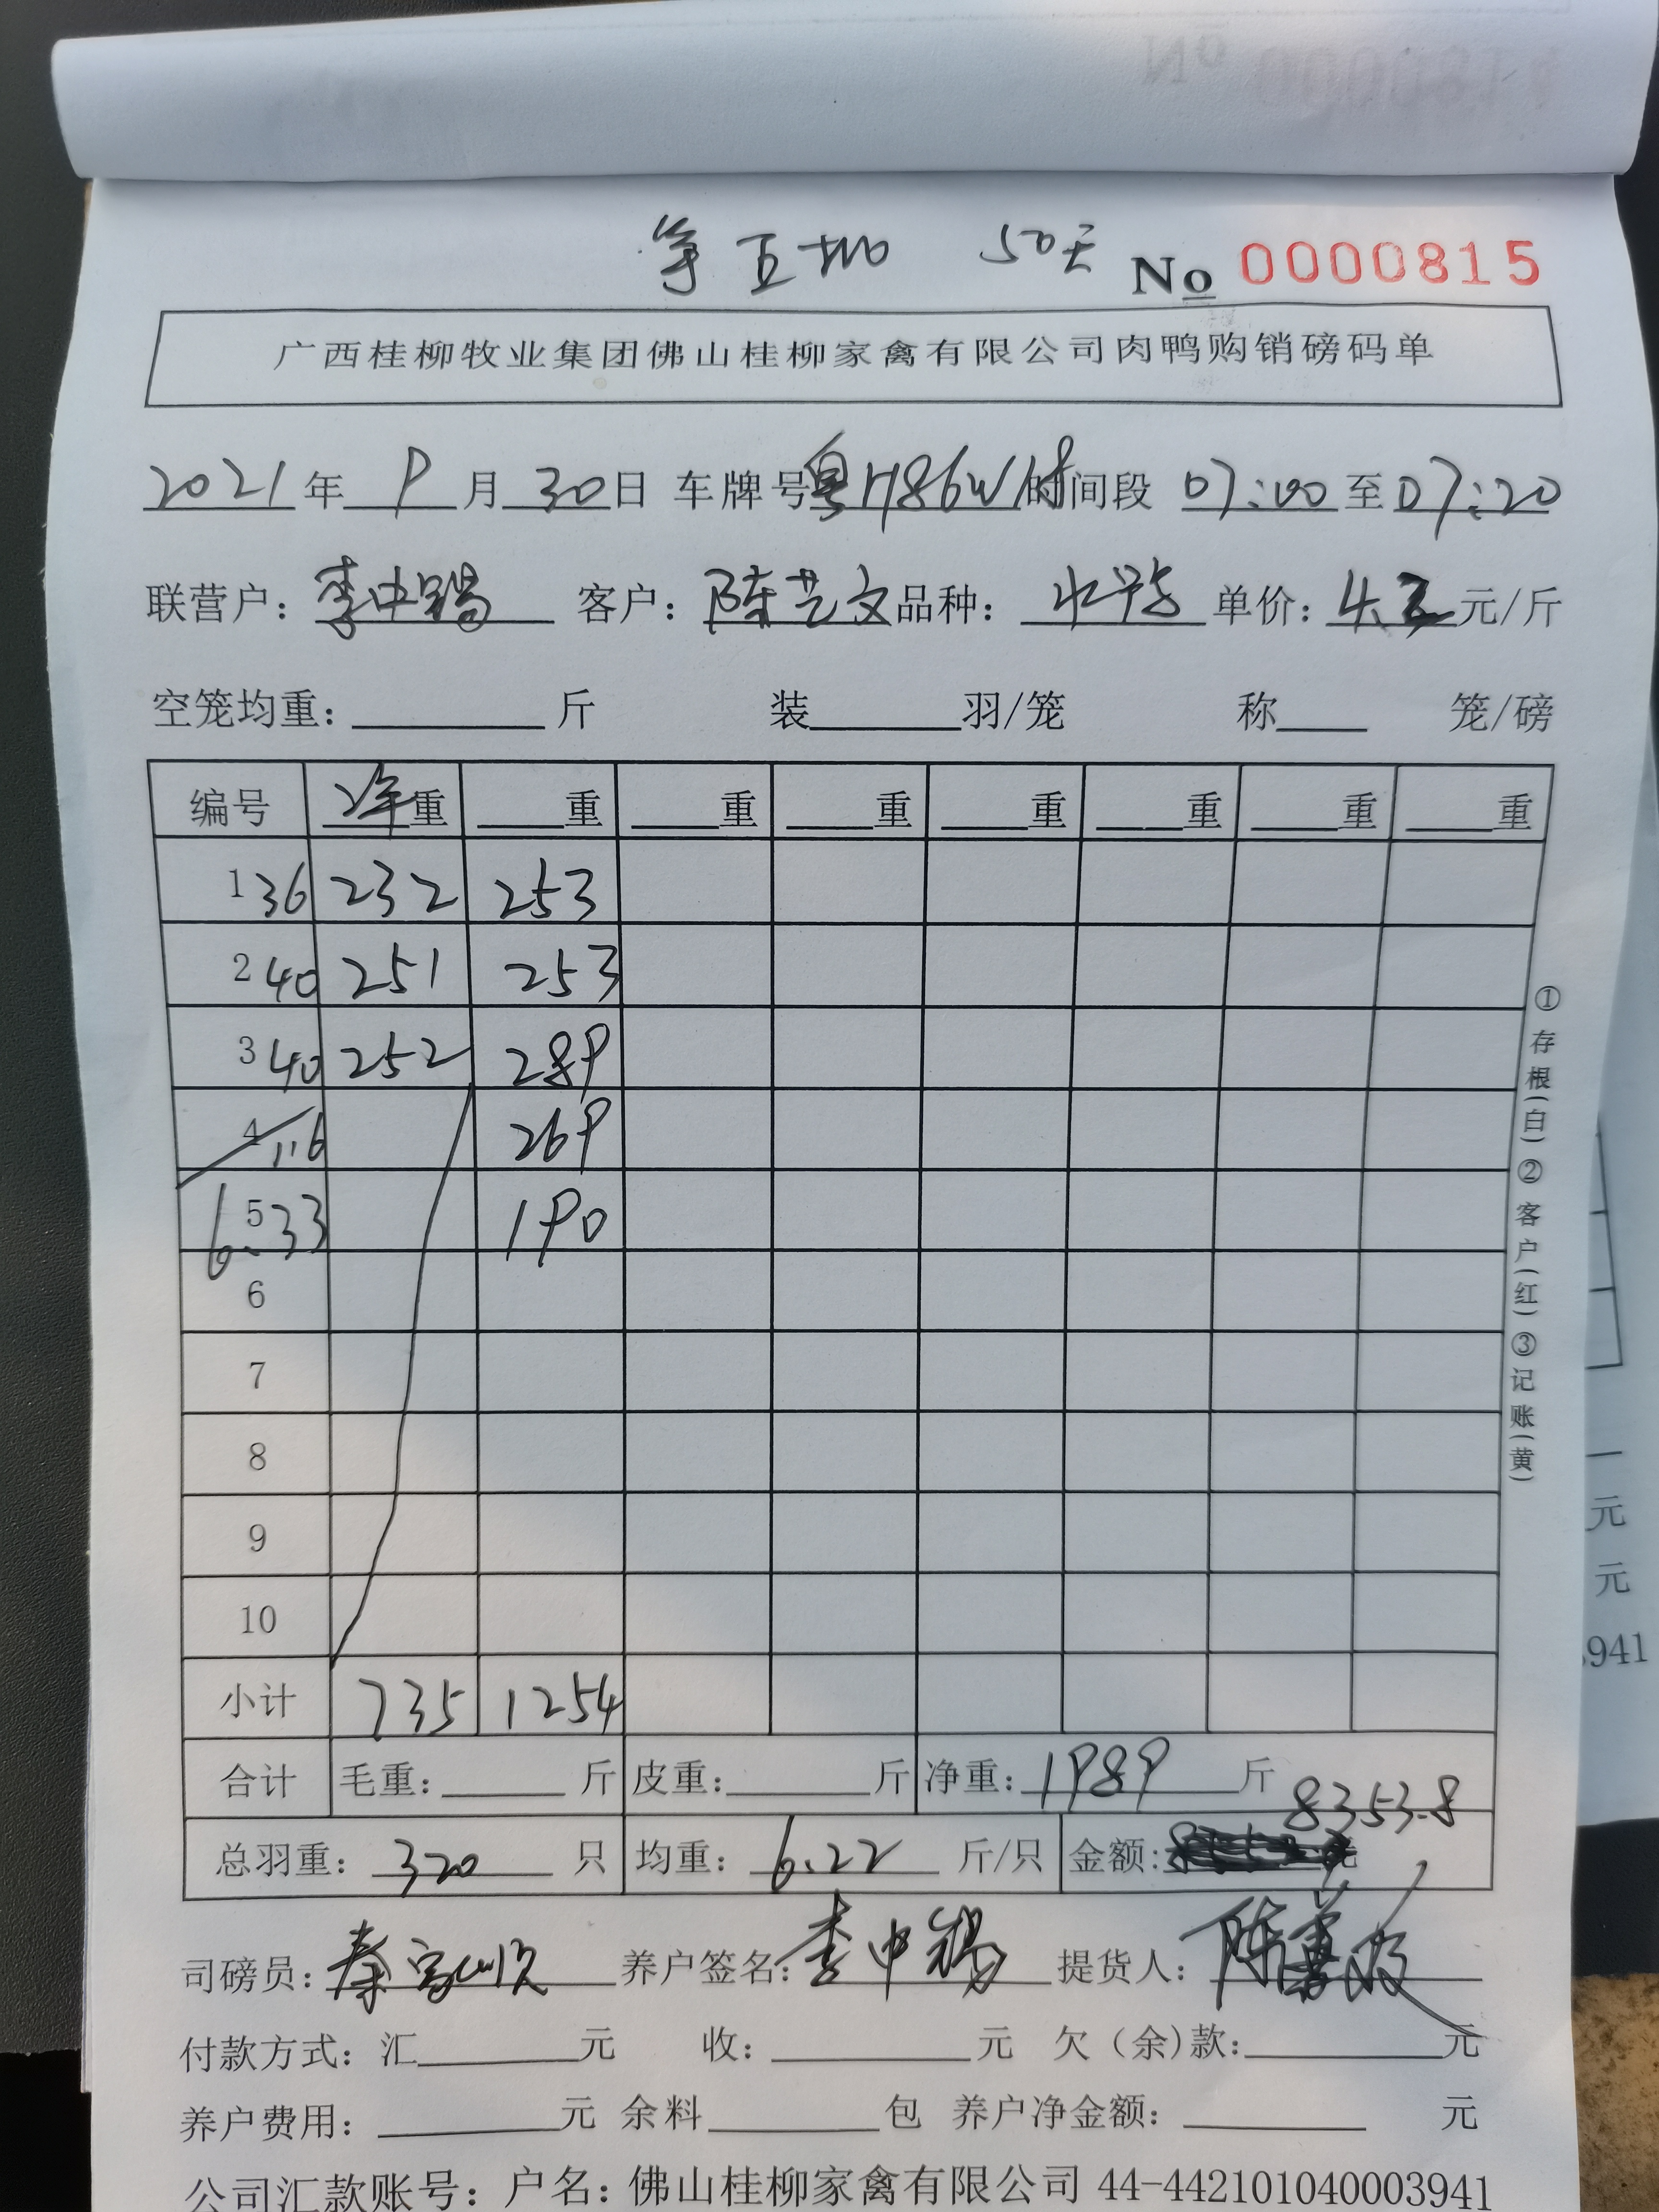 第五批 50天 No 0000815
广西桂柳牧业集团佛山桂柳家禽有限公司肉鸭购销磅码单
2021年 9月30日 车牌号 粤H86W 时间段 07:00至07:20
联营户:李中锡 客户:陈艺文 品种: 水鸭 单价: 4. 元/斤
空笼均重: 斤 装 羽/笼 称 笼/磅
编号 净重 重 重 重 重 重 重 重
1 36 232 253
2 40 251 253
3 40 252 289
4 116 269
5 6.33 190
6
7
8
9
10
小计 735 1254
合计 毛重: 斤 皮重: 斤 净重: 1989 斤
8353.8
总羽重: 320 只 均重: 6.22 斤/只 金额: 元
司磅员: 秦 养户签名: 李中锡 提货人: 陈
付款方式: 汇 元 收: 元 欠(余)款: 元
养户费用: 元 余料 包 养户净金额: 元
公司汇款账号: 户名: 佛山桂柳家禽有限公司 44-442101040003941
①存根(白)②客户(红)③记账(黄)
元
元
941